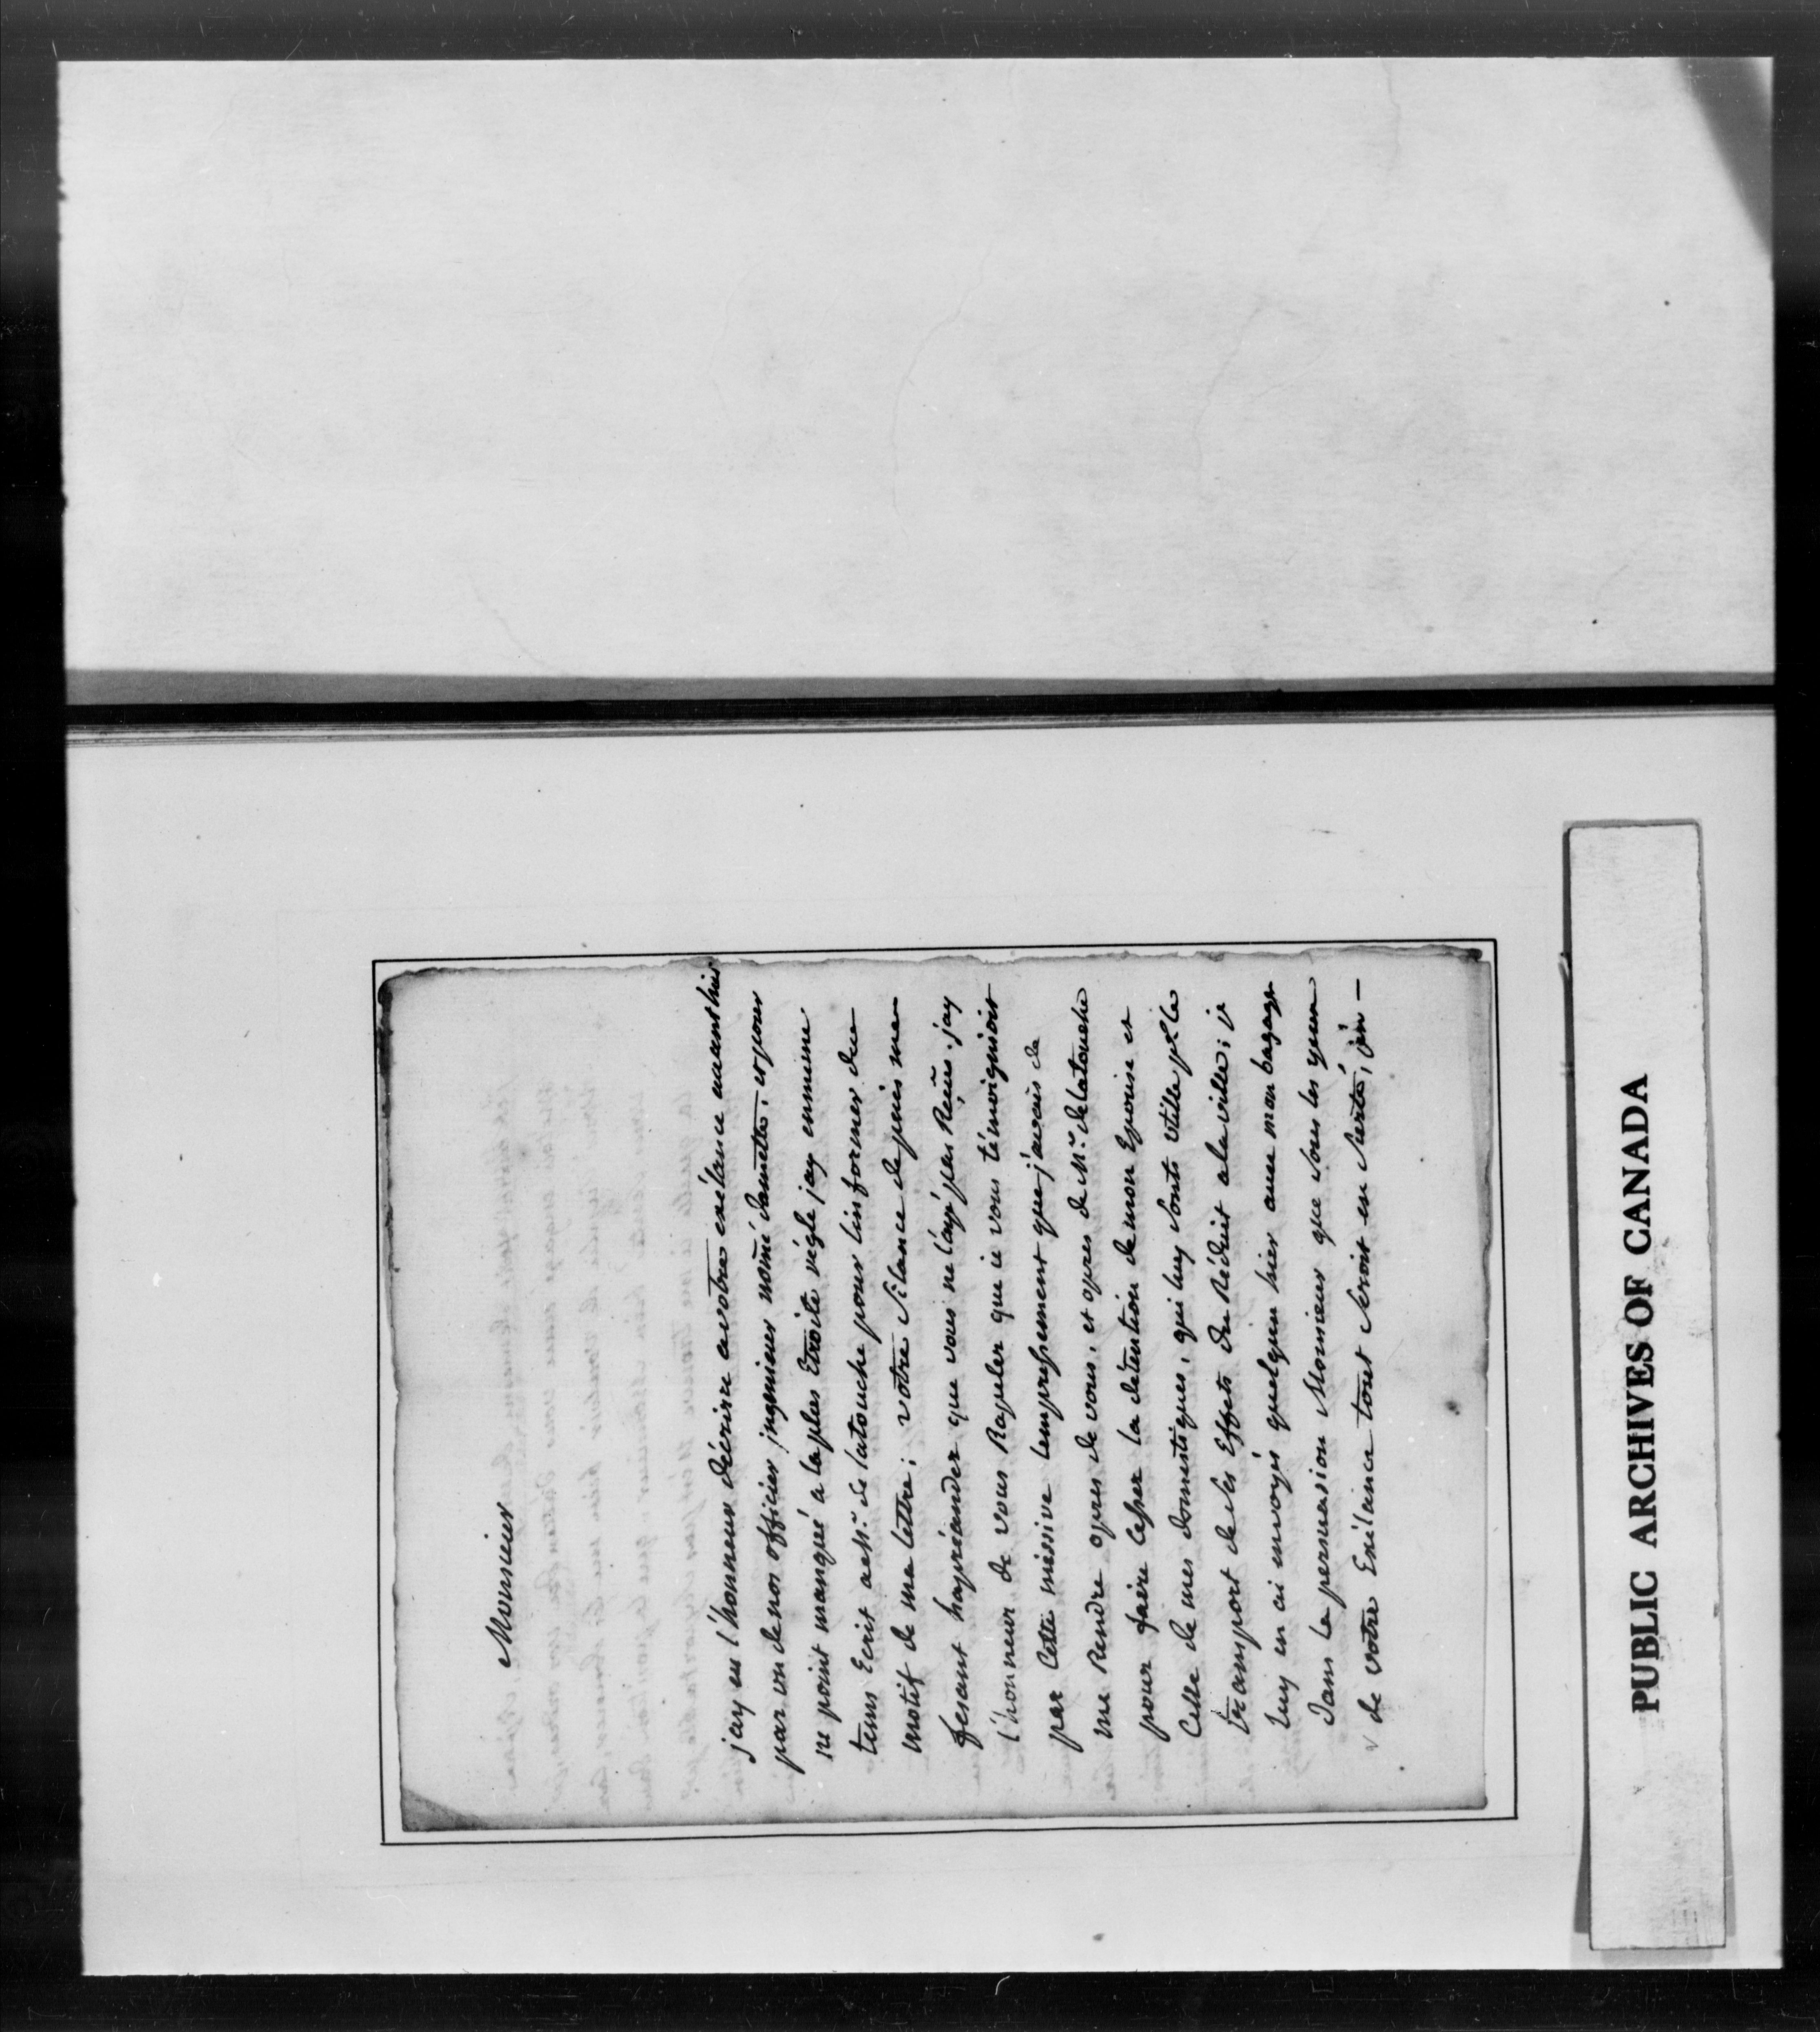 Monsieur
jay eu l'honneur décrire a votre exélance auant hier
par un de nos officier ingenieur nom̃é damette, et pour
ne point manqué a la plus Etroite régle jay en mime
tems Ecrit a Mr. de latouche pour linformer du
motif de ma lettre; votre Silance depuis me
fesant hapréander que vous ne l'ayés pas Reçus. jay
l'honneur de vous Rapeler que ie vous témoignioit
par Cette missive lempressement que j'auois de
me Rendre opres de vous, et opres de Mr. de latouche
pour faire Cesser la détention de mon Epouise et
Celle de mes domestiques, qui luy Sonts utille pr. le
transport de Ses Effets du Réduit a la ville; ie
luy en ai envoyés quelquun hier auec mon bagage
Dans la persuasion Monsieur que Sous les yeux
de votre Exélance tout Seroit en Surté,
PUBLIC ARCHIVES OF CANADA